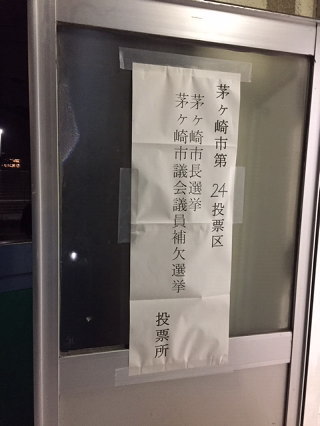 茅ヶ崎市第24投票区
茅ヶ崎市長選挙
茅ヶ崎市議会議員補欠選挙
投票所